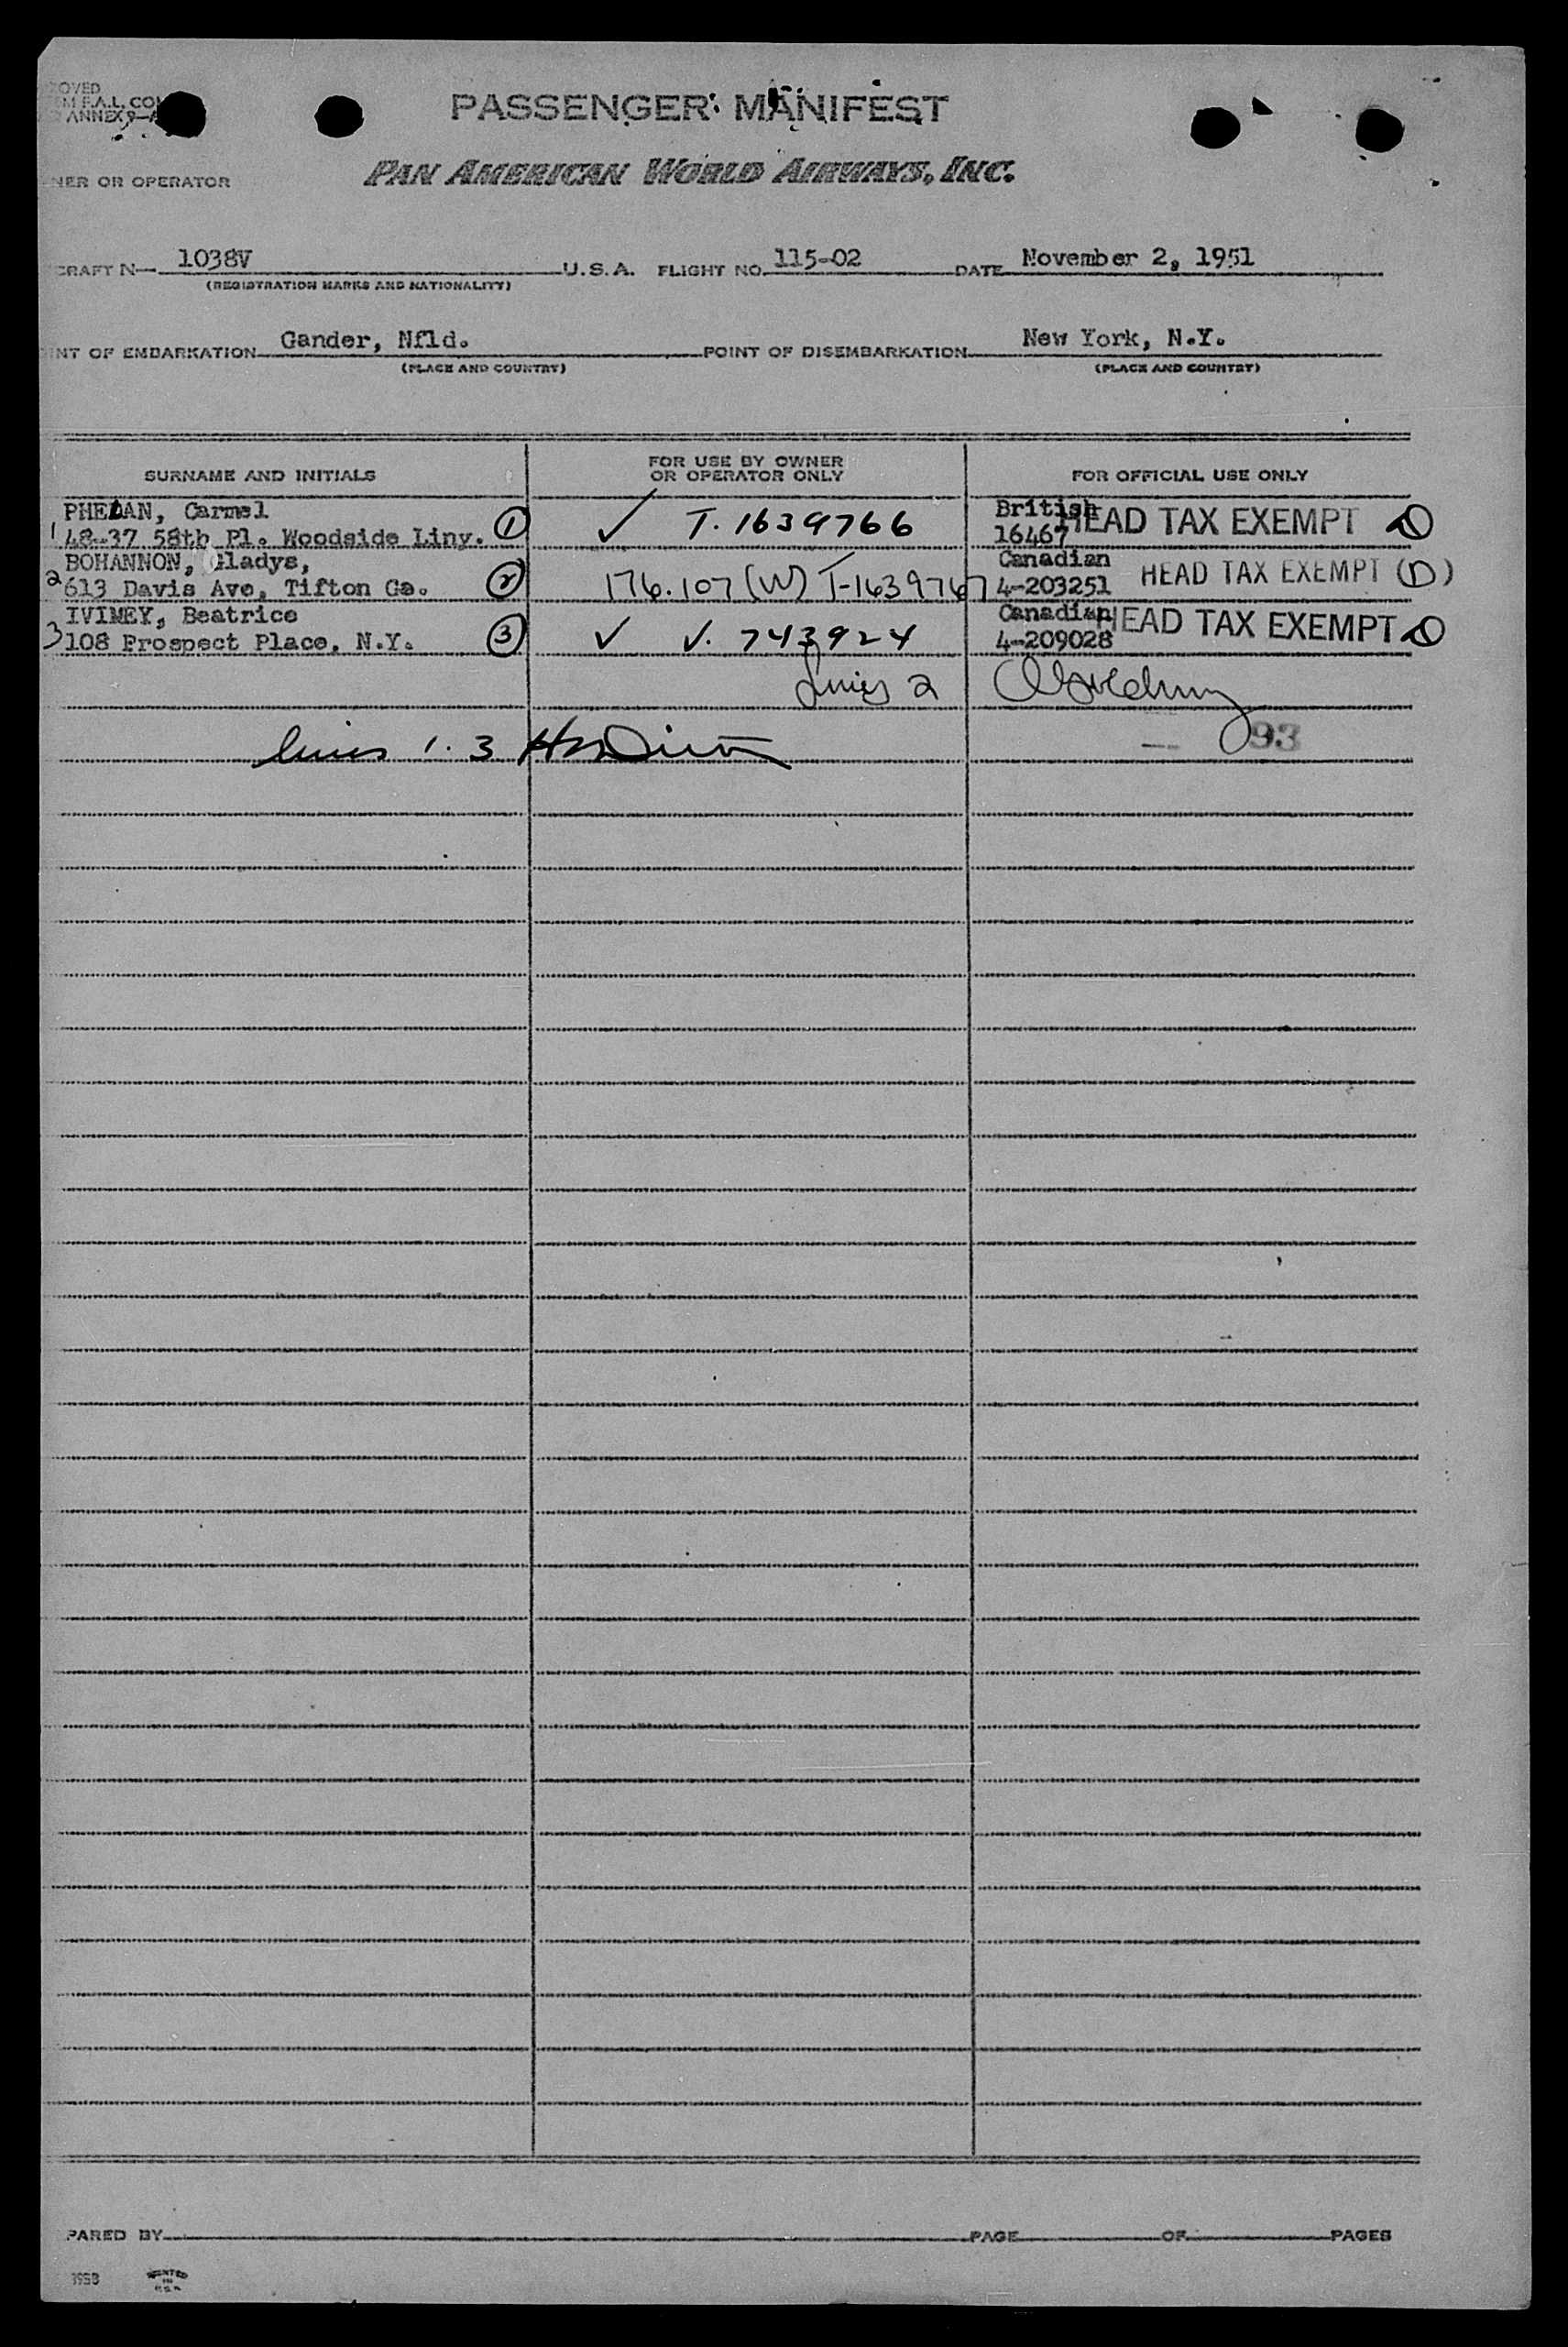 OVED
EM F.A.L. CO
ANNEX 9-A
PASSENGER MANIFEST
NER OR OPERATOR
PAN AMERICAN WORLD AIRWAYS, INC.
CRAFT N— 1038V U.S.A. FLIGHT NO. 115-02 DATE November 2, 1951
(REGISTRATION MARKS AND NATIONALITY)
INT OF EMBARKATION Gander, Nfld. POINT OF DISEMBARKATION New York, N.Y.
(PLACE AND COUNTRY) (PLACE AND COUNTRY)
SURNAME AND INITIALS FOR USE BY OWNER OR OPERATOR ONLY FOR OFFICIAL USE ONLY
PHELAN, Carmel British
1 48-37 58th Pl. Woodside Liny. 1 ✓ T. 1639766 16467 HEAD TAX EXEMPT D
BOHANNON, Gladys, Canadian
2 613 Davis Ave, Tifton Ga. 2 176.107 (W) T-1639767 4-203251 HEAD TAX EXEMPT (D)
IVIMEY, Beatrice Canadian
3 108 Prospect Place, N.Y. 3 ✓ V. 743924 4-209028 HEAD TAX EXEMPT D
Lines 2
93
lines 1. 3
PARED BY PAGE OF PAGES
1958 PRINTED IN U.S.A.